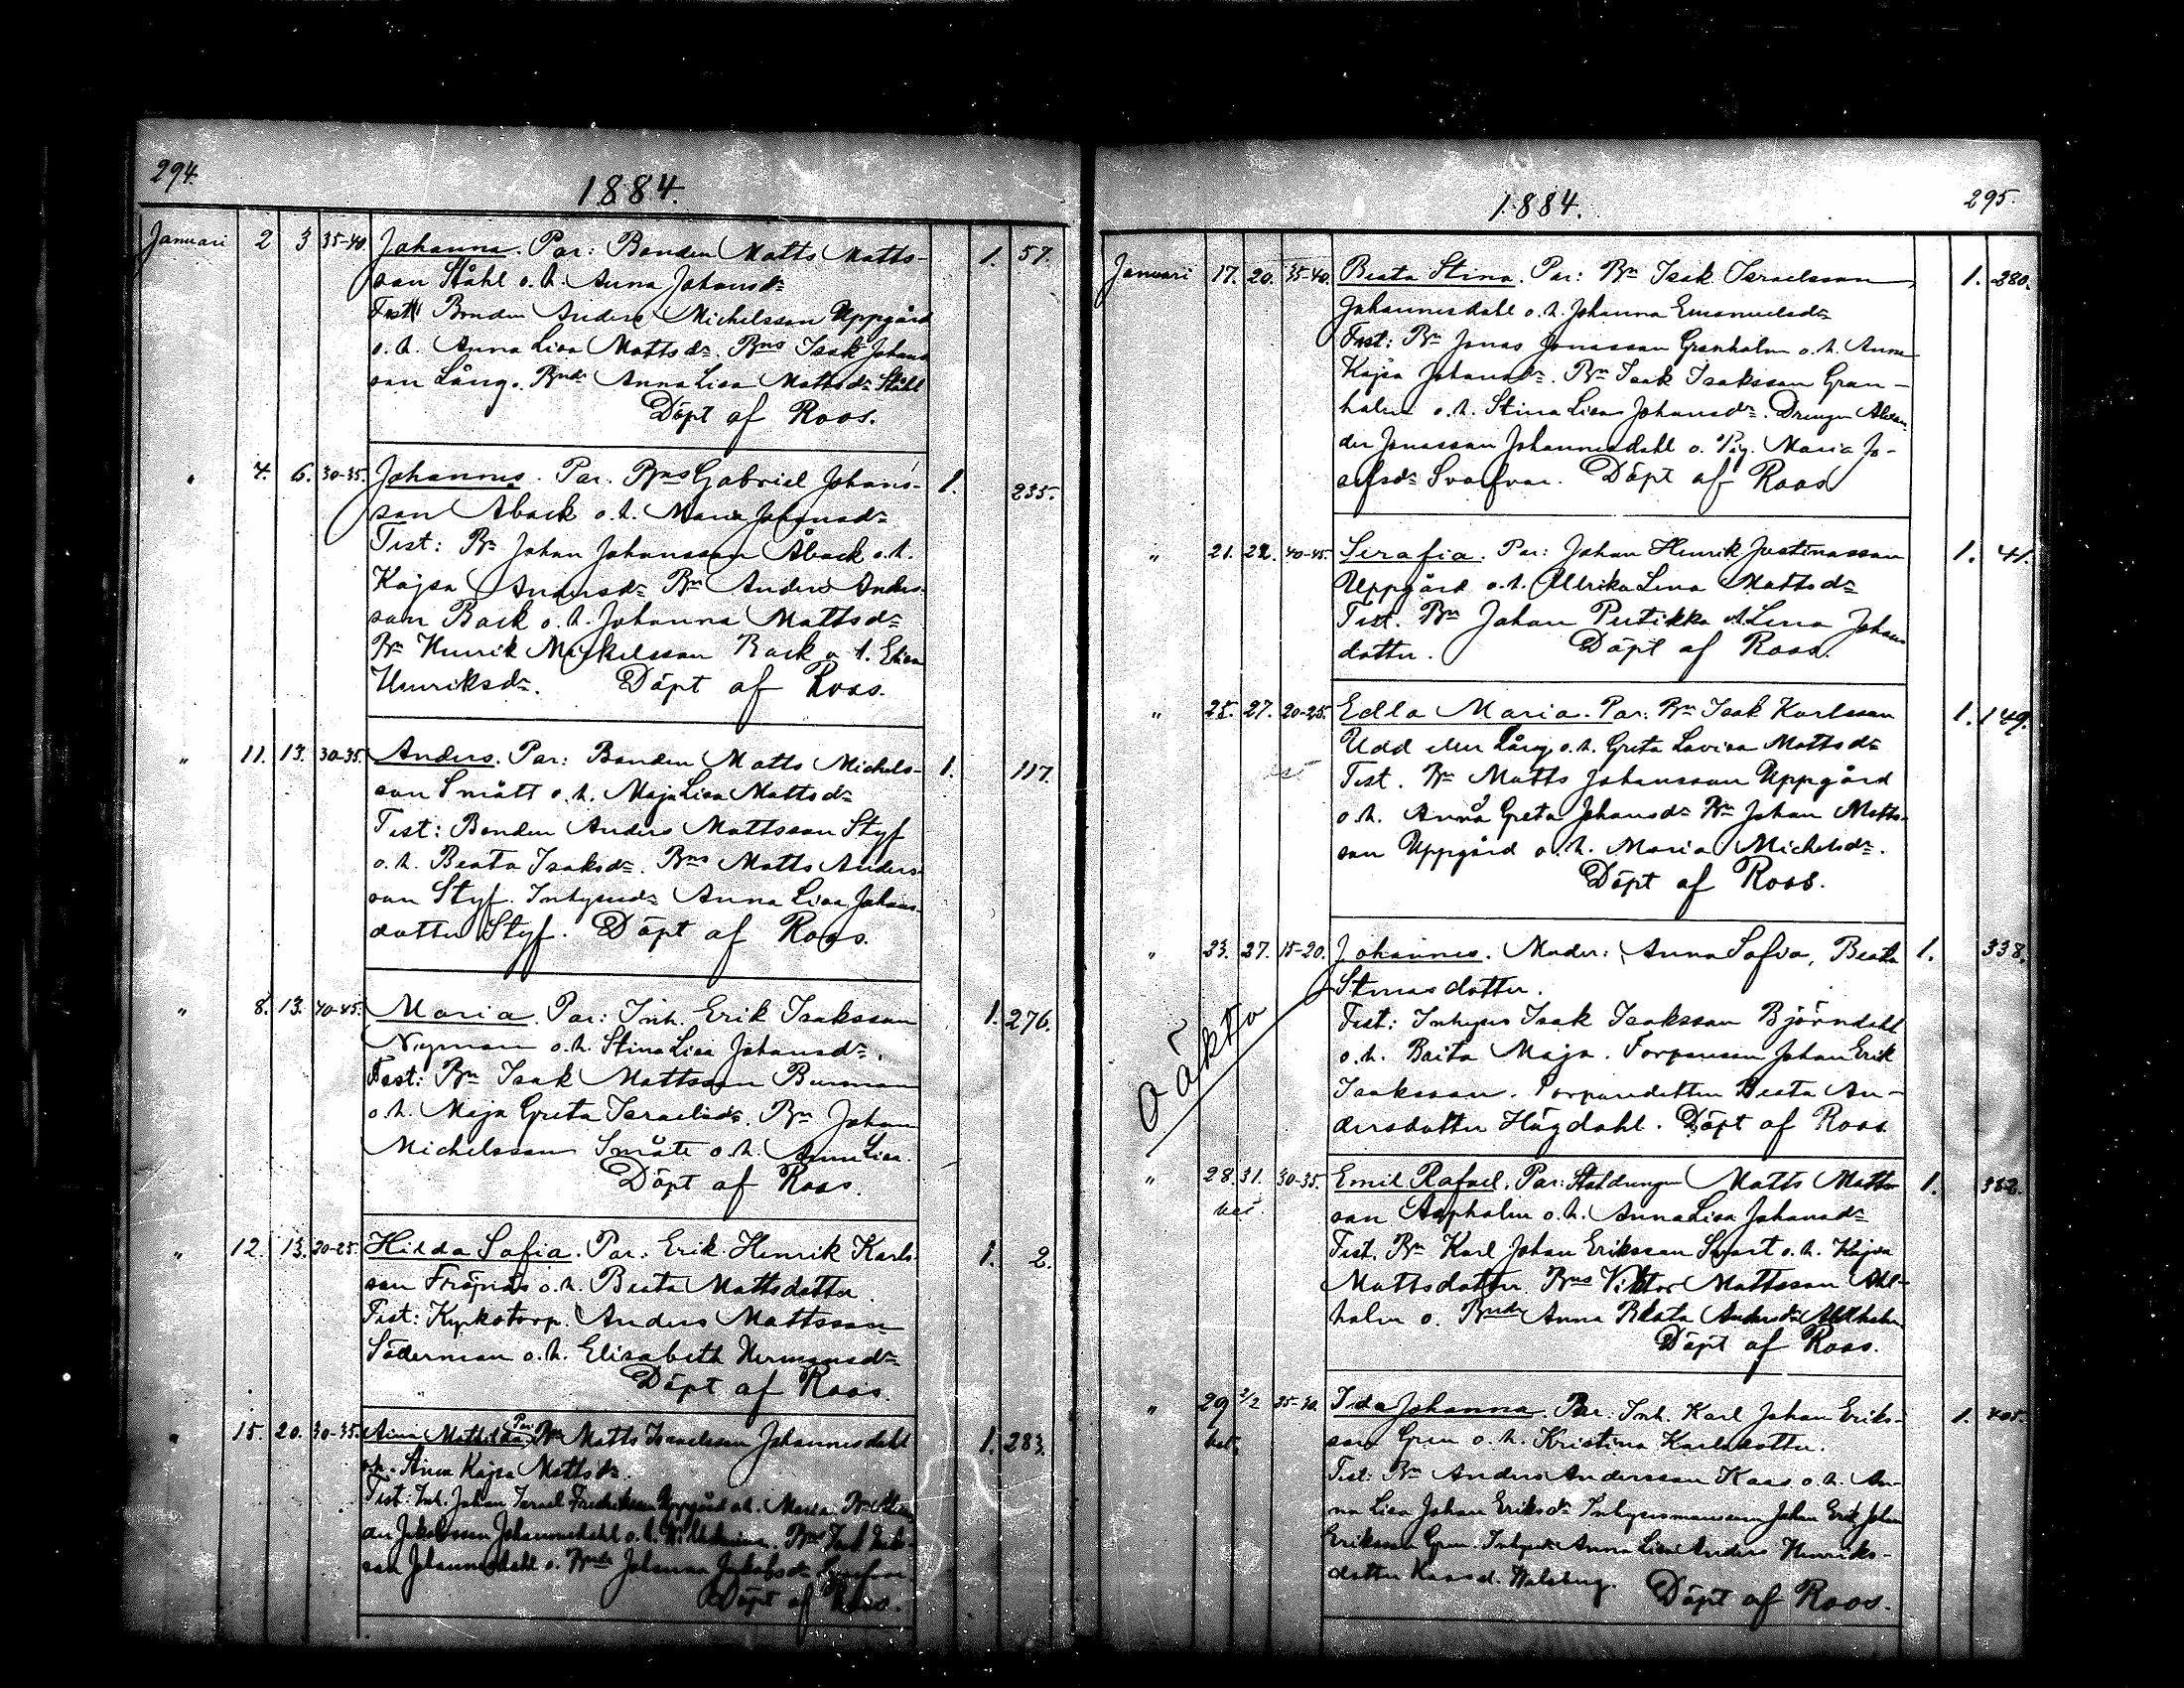 294.
1884.
Januari 2 3 35-40. Johanna. Par: Bonden Matts Matts- 1. 57.
son Ståhl o. h. Anna Johansd.
Test: Bonden Anders Michelsson Uppgård
o. h. Anna Lisa Mattsd. Bns Isak Johans
son Lång. Bnd. Anna Lisa Mattsd. Ståhl
Döpt af Roos.
" 4. 6. 30-35. Johannes. Par. Bns Gabriel Johans- 1. 235.
son Åback o. h. Maria Johansd.
Test: Bn Johan Johansson Åback o. h.
Kajsa Andersd. Bn Anders Anders-
son Back o. h. Johanna Mattsd.
Bn Henrik Mickelsson Back o. h. Elisa
Henriksd. Döpt af Roos.
" 11. 13. 30-35. Anders. Par: Bonden Matts Michels- 1. 117.
son Smått o. h. Maja Lisa Mattsd.
Test: Bonden Anders Mattsson Styf
o. h. Beata Isaksd. Bns Matts Anders-
son Styf. Inhysesd. Anna Lisa Johans-
dotter Styf. Döpt af Roos.
" 8. 13. 40-45. Maria. Par: Inh. Erik Isaksson 1. 276.
Nyman o. h. Stina Lisa Johansd.
Test: Bn Isak Mattsson Burman
o. h. Maja Greta Israelsd. Bn Johan
Michelsson Småte o. h. Anna Lisa.
Döpt af Roos.
" 12. 13. 20-25. Hilda Sofia. Par. Erik Henrik Karls- 1. 2.
son o. h. Beata Mattsdotter.
Test: Kyrkotorp. Anders Mattsson
Söderman o. h. Elisabeth Hermansd.
Döpt af Roos.
" 15. 20. 30-35. Aina Mathilda. Par. Bn Matts Israelsson Johannesdahl 1. 283.
o. h. Anna Kajsa Mattsd.
Test: Inh. Johan Israel Fredriksson Uppgård o. h. Maria. Bn
Jakobsson Johannesdahl o. h. Wilhelmina. Bns Isak
son Johannesdahl o. Bnd. Johanna Jakobsd.
Döpt af Roos.
1884.
295.
Januari 17. 20. 35-40. Beata Stina. Par: Bn Isak Israelsson 1. 280.
Johannesdahl o. h. Johanna Emanuelsd.
Test: Bn Jonas Jonasson Granholm o. h. Anna
Kajsa Johansd. Bn Isak Isaksson Gran-
holm o. h. Stina Lisa Johansd. Drengen Alexan-
der Jonasson Johannesdahl o. Pig. Maria Jo-
sefsd. Svarfvar. Döpt af Roos
" 21. 22. 40-45. Serafia. Par: Johan Henrik Justinasson 1. 41.
Uppgård o. h. Ulrika Lena Mattsd.
Test. Bn Johan Pertikka o. h. Lena Johans
dotter. Döpt af Roos.
" 25. 27. 20-25. Edla Maria. Par: Bn Isak Karlsson 1. 149.
Udd eller Lång o. h. Greta Lovisa Mattsd.
Test. Bn Matts Johansson Uppgård
o. h. Anna Greta Johansd. Bn Johan Matts-
son Uppgård o. h. Maria Michelsd.
Döpt af Roos.
" 23. 27. 15-20. Johannes. Moder: Anna Sofia, Beata 1. 338.
Stinasdotter.
oäkta
Test: Inhyses Isak Isaksson Björndahl
o. h. Brita Maja. Torparesn Johan Erik
Isaksson. Torparedottern Beata An-
dersdotter Hägdahl. Döpt af Roos
" 28. 31. 30-35. Emil Rafael. Par: Matts Matts- 1. 382.
son Aspholm o. h. Anna Lisa Johansd.
Test. Bn Karl Johan Eriksson Svart o. h. Kajsa
Mattsdotter. Bns Viktor Mattsson Ahl-
holm o. Bnd. Anna Beata Andersd. Ahlholm
Döpt af Roos.
" 29 2/2 35-40. Ida Johanna. Par. Inh. Karl Johan Eriks- 1. 405.
son Gren o. h. Kristina Karlsdotter.
Test: Bn Anders Andersson Kass o. h. An-
na Lisa Johan Eriksd. Inhysesmannen Johan Erik Johan
Eriksson Gren. Inhysesd. Anna Lisa Anders Henriks-
dotter Kass d. Döpt af Roos.